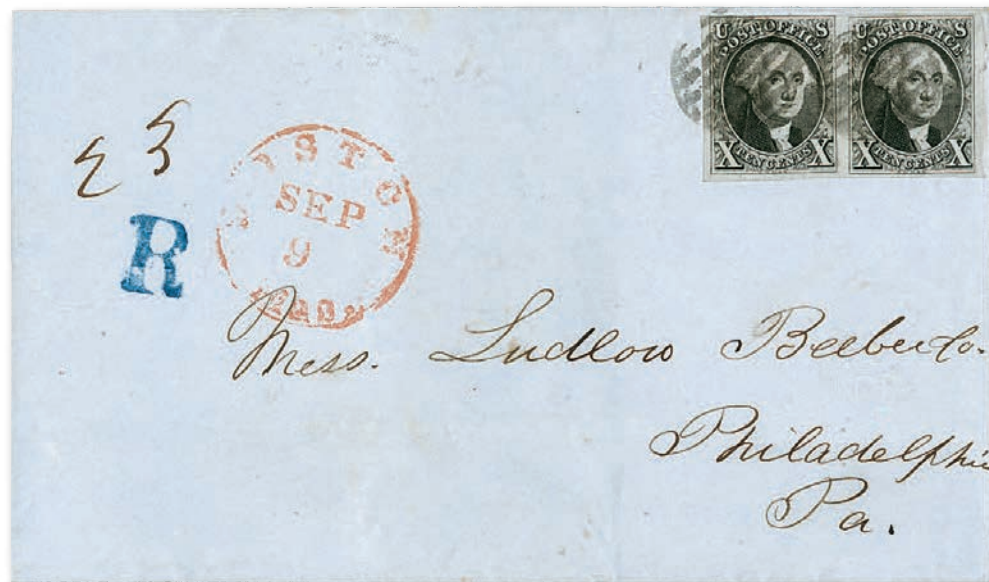 U S
POST OFFICE
X TEN CENTS X
U S
POST OFFICE
X TEN CENTS X
BOSTON
SEP
9
R
Mess. Ludlow Beebe & Co.
Philadelphia
Pa.